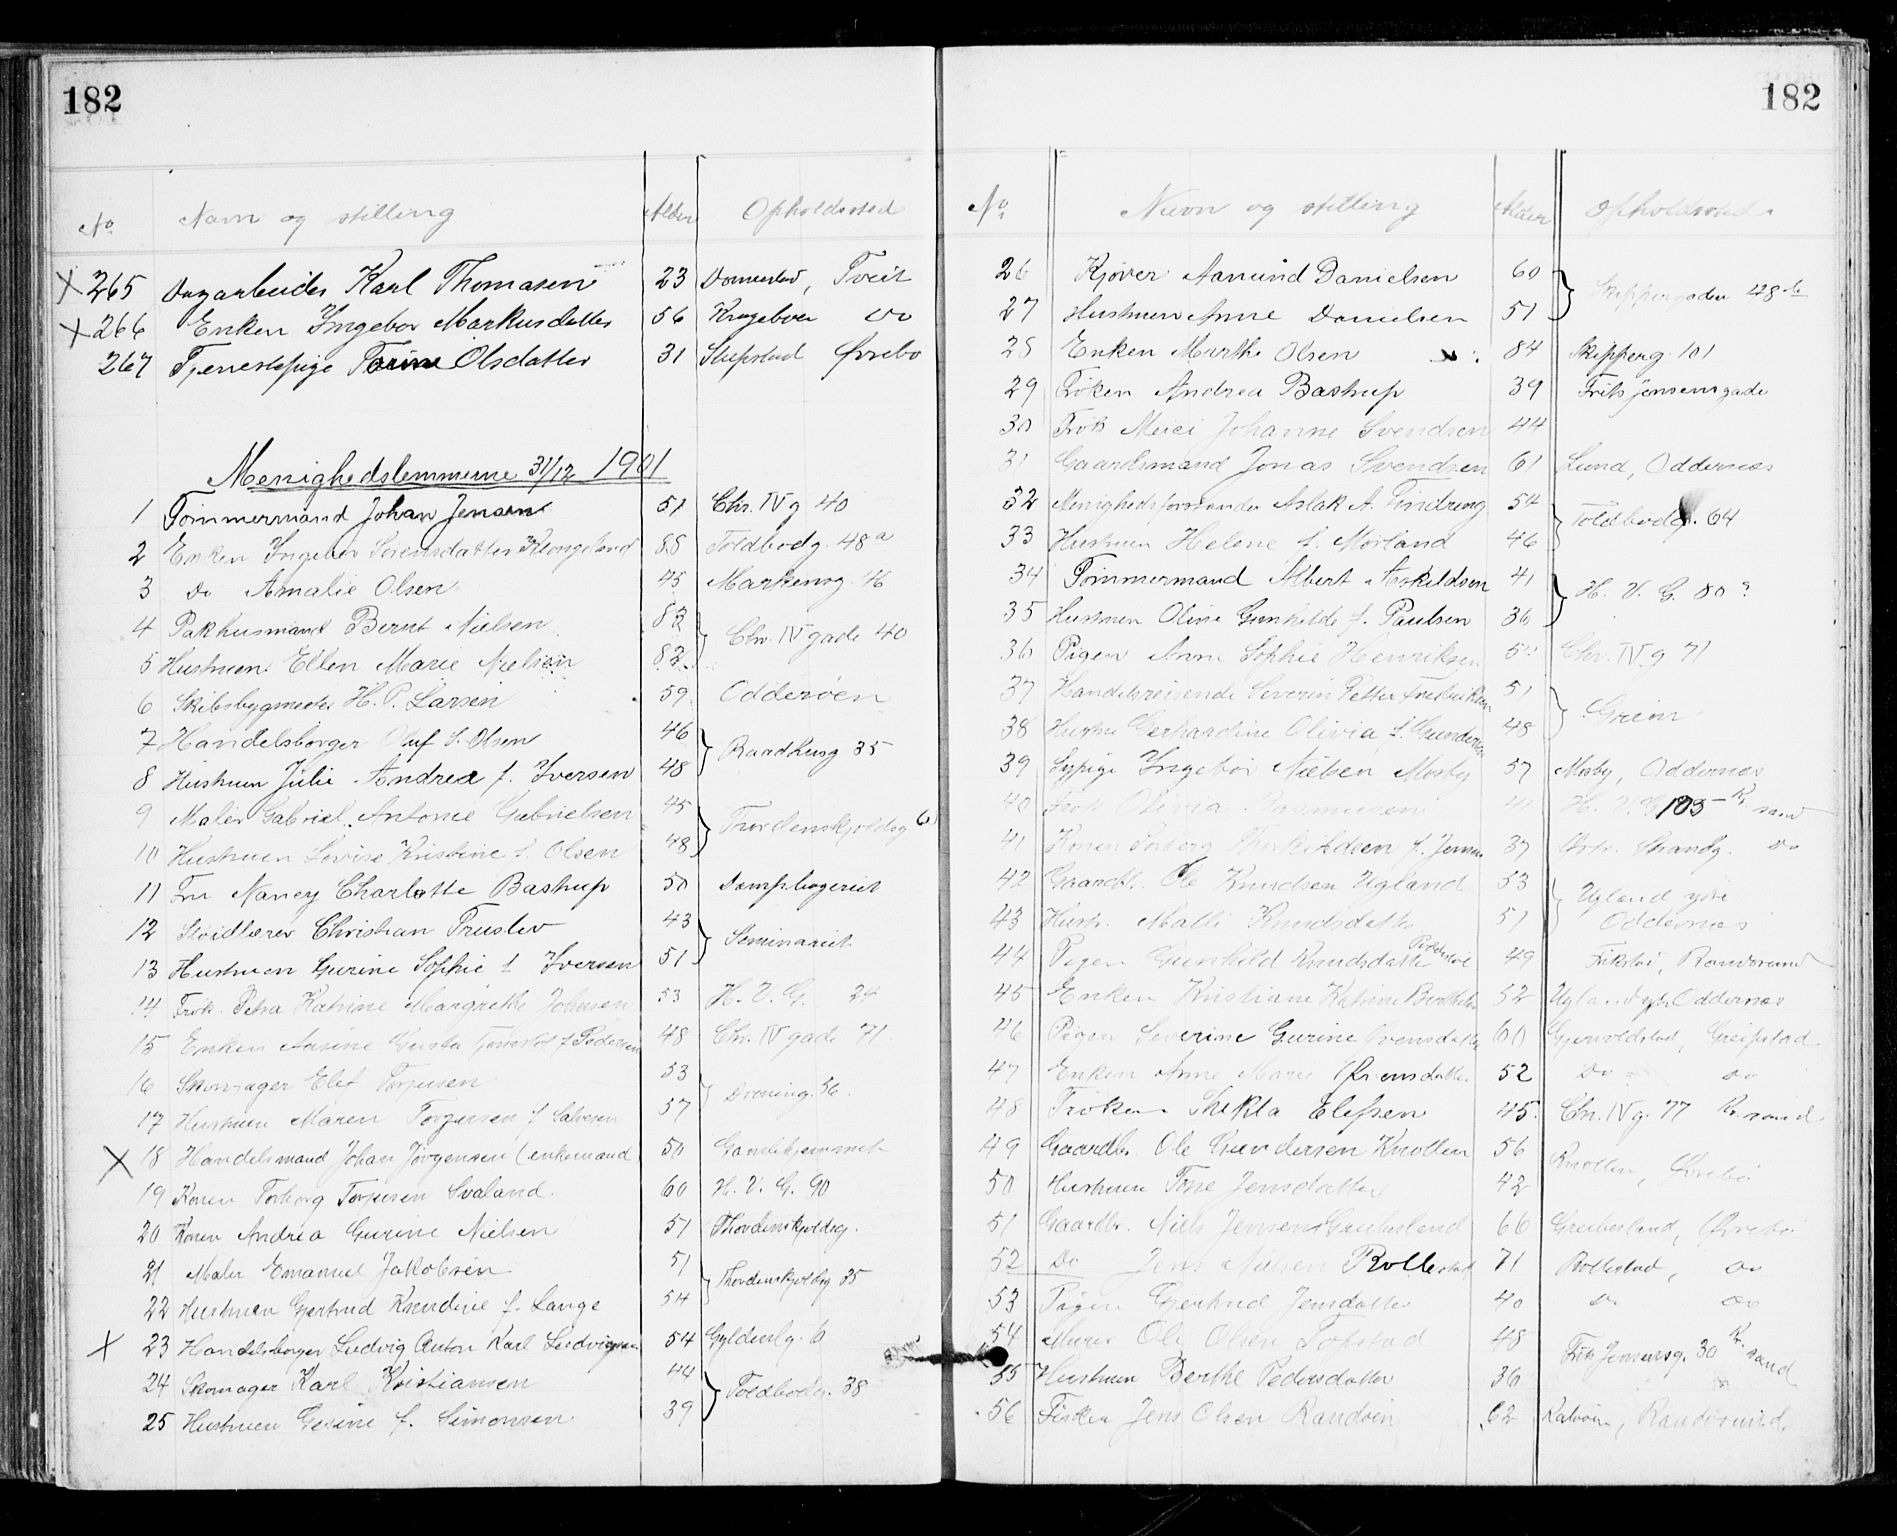 182
No Navn og stilling Alder Opholdssted
X 265 Dagarbeider Karl Thomasen 23 Tveit
X 266 Enken Ingebor Markusdatter 56 Krageboen Do
267 Tjenestepige Torine Olsdatter 31 Stepstad Øvrebo
Menighedslemmerne 31/12 1901
1 Tømmermand Johan Jensen 51 Chr. IV g 40
2 Enken Ingebor Sørensdatter Klongeland 88 Toldbodg. 48 a
3 Do Amalie Olsen 45 Markensg 46
4 Pakhusmand Bernt Nielsen 83 } Chr. IV gade 40
5 Hustruen Ellen Marie Nielsen 82
6 Skibsbygmester H. P. Larsen 59 Odderøen
7 Handelsborger Oluf S. Olsen 46 } Raadhusg 35
8 Hustruen Julie Andrea f. Iversen 48
9 Maler Gabriel Antonie Gabrielsen 45 } Tordenskjoldsg 61
10 Hustruen Lovise Kristine f. Olsen 48
11 Fru Nancy Charlotte Bastrup 50 Dampbageriet
12 Sløidlærer Christian Truslev 43 } Seminariet
13 Hustruen Gurine Sophie f Iversen 51
14 Frøk. Petra Katrine Margrethe Johnsen 53 H. V. G. 24
15 Enken Asine Gusta f Pedersen 48 Chr. IV gade 71
16 Skomager Elef Torjusen 53 } Droning. 56.
17 Hustruen Maren Torjusen f Salvesen 57
X 18 Handelsmand Johan Jørgensen (enkemand 50 Gamlehjemmet
19 Konen Torborg Torjusen Svaland 60 H. V. G. 90
20 Konen Andrea Gurine Nielsen 51 Thordenskjoldsg.
21 Maler Emanuel Jakobsen 51 } Thordenskjoldsg 35
22 Hustruen Gjertrud Knudine f. Lange 54
X 23 Handelsborger Ludvig Anton Karl Ludvigsen 54 Gyldenlg. 6
24 Skomager Karl Kristiansen 44 } Toldbodg. 38
25 Hustruen Gesine f. Simonsen 39
182
No Navn og stilling Alder Opholdssted
26 Kjøver Aanund Danielsen 60 } Skippergaden 48
27 Hustruen Anne Danielsen 51
28 Enken Marthe Olsen 84 Skipperg. 101
29 Frøken Andrea Bastrup 39 Frits Jensensgade
30 Frøk Meici Johanne Svendsen 44
31 Gaardsmand Jonas Svendsen 61 Lund, Oddernæs
32 Menighedsforstander Aslak A. Tindreng 54 } Toldbodg. 64
33 Hustruen Helene f. Mørland 46
34 Tømmermand Albert Askildsen 41 } H. V. G. 80
35 Hustruen Oline Gunhilde f. Paulsen 36
36 Pigen Anne Sophie Henriksen Chr. IV g 71
37 Handelsreisende Severin Petter Fredriksen 51 } Grim
38 Hustru Gerhardine Olivia f. Gundersen 48
39 Sypige Ingebor Nielsen Mosby 57 Mosby, Oddernæs
40 Frøk Olivia Rasmussen 41 H. V. G 105 Kr. sand
41 Konen Torborg Thorkildsen f. Jensen 37 Østr. Strandg. Do
42 Gaardbr. Ole Knudsen Ugland 53 } Ugland ytre
43 Hustr. Malli Knudsdatter 51 Oddernæs
44 Pigen Gunhild Knudsdatter 49 Randøsund
45 Enken Kristiane Katrine 52 Ugland ytre Oddernæs
46 Pigen Severine Gurine Svensdatter 60 Gjervoldstad, Greipstad
47 Enken Anne Marie 52 Do Do
48 Frøken Thekla Elefsen 45. Chr. IV g. 77 Kr. sand
49 Gaardbr. Ole Gundersen Knollen 56 Knollen, Øvrebø
50 Hustruen Tone Jensdatter 42
51 Gaardbr. Niels Jensen Greibesland 66 Greibesland, Øvrebø
52 Do Jens Nielsen Rollestad 71 Rollestad, Do
53 Pigen Gjertrud Jensdatter 40 Do Do
54 Murer Ole Olsen Fokstad 48 Fritz Jensensg. 30 Kr. sand
55 Hustruen Berthe Pedersdatter 36
56 Fisker Jens Olsen Randøen 62 Randøsund.